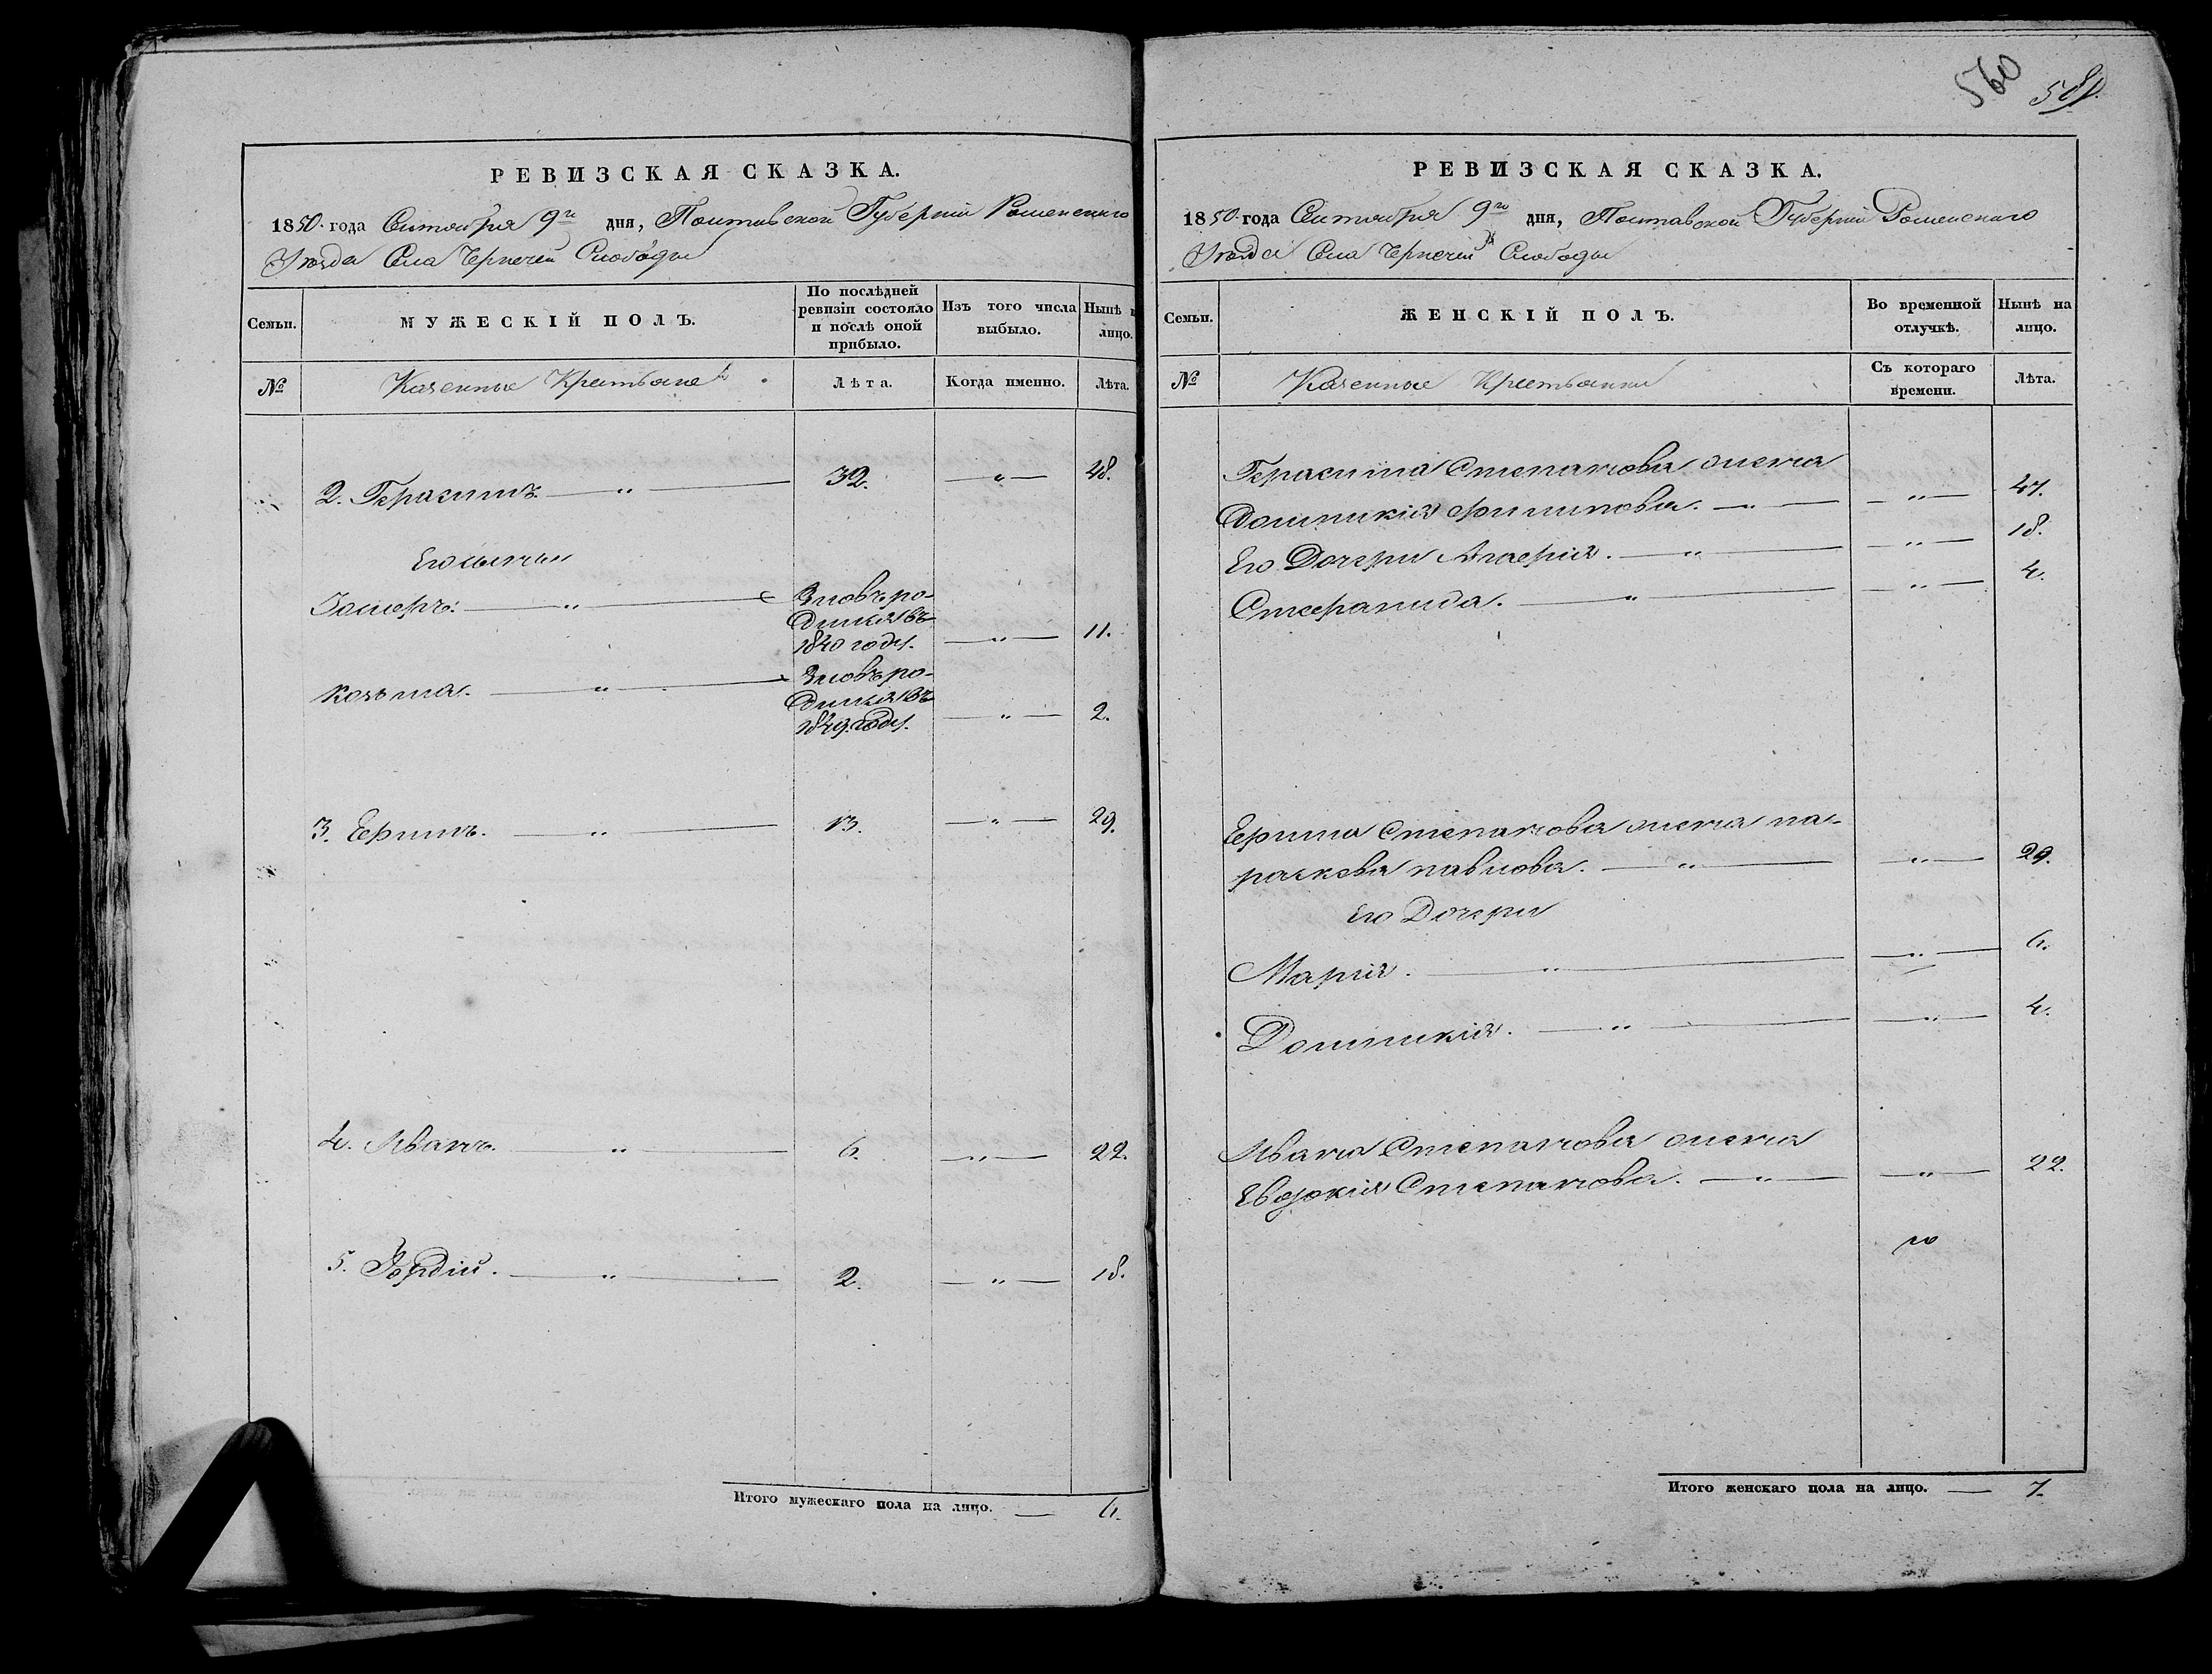 РЕВИЗСКАЯ СКАЗКА.
1850. года Сентября 9го дня, Полтавской Губернии Роменского
Уезда Села Чернечей Слободы
Семьи.
МУЖЕСКІЙ ПОЛЪ.
По послѣдней ревизіи состояло и послѣ оной прибыло.
Изъ того числа выбыло.
Нынѣ н лицо.
№
Казенные Крестьяне
Лѣта.
Когда именно.
Лѣта.
2. Герасимъ. — " — 32. — " — 48.
Его сыны
— " — Вновь ро-
дился въ
1840 году. — " — 11.
Козьма. — " — Вновь ро-
дился въ
1849. году. — " — 2.
3. Ефимъ. — " — 13. — " — 29.
4. Иванъ. — " — 6. — " — 22.
5. Гордій. — " — 2. — " — 18.
Итого мужескаго пола на лицо. — 6.
560
РЕВИЗСКАЯ СКАЗКА.
1850. года Сентября 9го дня, Полтавской Губернии Роменского
Уезда Села Чернечей Слободы
Семьи.
ЖЕНСКІЙ ПОЛЪ.
Во временной отлучкѣ.
Нынѣ на лицо.
№
Казенные Крестьянки
Съ котораго времени.
Лѣта.
Герасима Степанова жена
Домникія Филипова. — " — — " — 47.
Его Дочери — " — — " — 18.
Стефанида. — " — — " — 4.
Ефима Степанова жена па-
раскева павлова. — " — — " — 29.
Его Дочери
Марія. — " — — " — 6.
Домникія. — " — — " — 4.
Ивана Степанова жена
Евдокия Степанова. — " — — " — 22.
Итого женскаго пола на лицо. — 7.